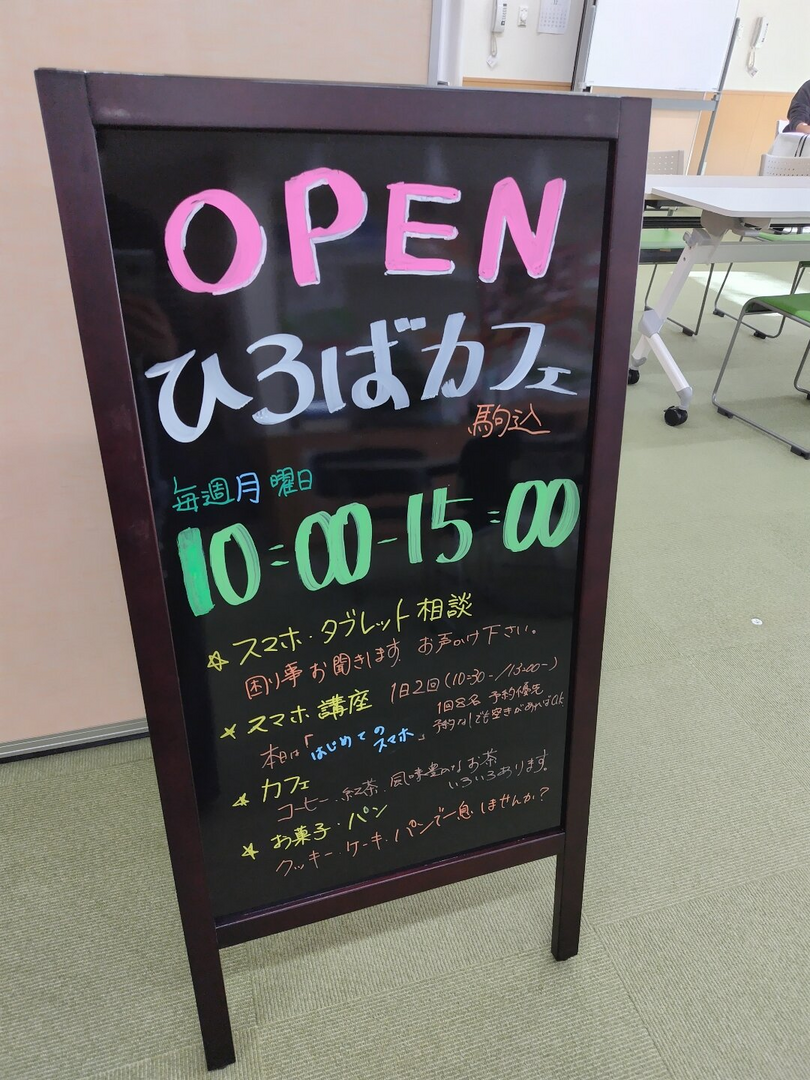 OPEN
ひろばカフェ
駒込
毎週月曜日
10:00-15:00
☆スマホ・タブレット相談
困り事お聞きします。お声かけ下さい。
☆スマホ講座 1日2回(10:30-/13:00-)
1回8名 予約優先
予約なしでも空きがあればOK
本日は「はじめてのスマホ」
☆カフェ
コーヒー、紅茶、風味豊かなお茶
いろいろあります。
☆お菓子・パン
クッキー・ケーキ・パンで一息しませんか?